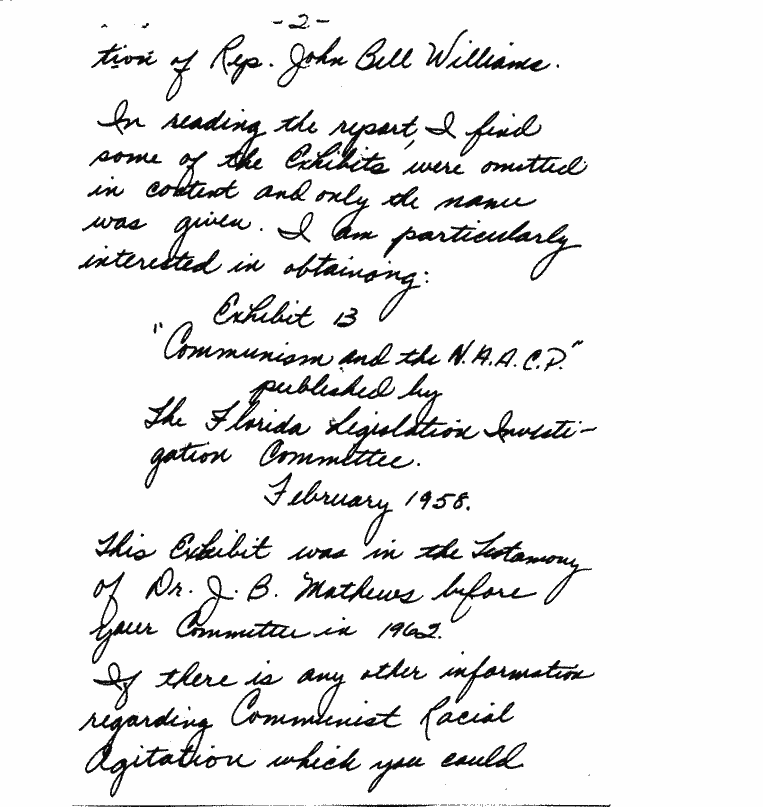 -2-
tion of Rep. John Bell Williams.
In reading the report, I find
some of the Exhibits were omitted
in content and only the name
was given. I am particularly
interested in obtainong:
Exhibit 13
"Communism and the N.A.A.C.P."
published by
The Florida Legislation Investi-
gation Committee.
February 1958.
This Exhibit was in the Testamony
of Dr. J. B. Mathews before
your Committee in 1962.
If there is any other information
regarding Communist Racial
Agitation which you could